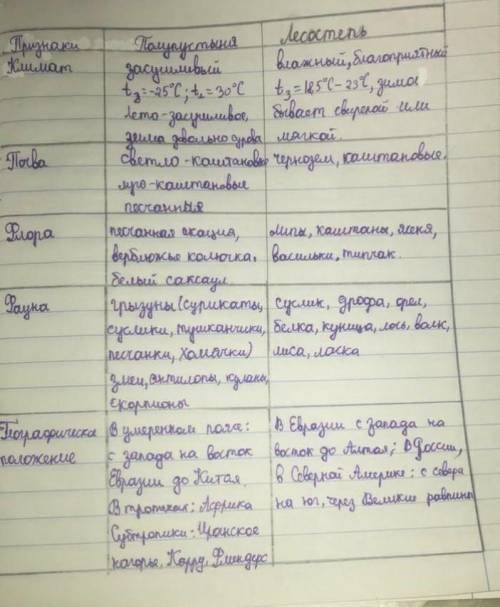 Признаки Полупустыня Лесостепь
Климат засушливый влажный, благоприятный
tз=-25°С; tл=30°С
лето-засушливое, бывает или
зима довольно сурова мягкой.
Почва светло-каштановые чернозем, каштановые.
каштановые
песчанныя
Флора песчанная акация, липы, каштаны,
верблюжье колючка, васильки, типчак.
белый саксаул
Фауна грызуны (сурикаты, суслик, дрофа, орел,
суслики, тушканчики, белка, куница, лось, волк,
песчанки, хомячки) лиса, ласка
змеи, антилопы, куланы,
скорпионы
Географическа В умеренном пояса: В Евразии с запада на
положение с запада на восток восток до Алтая; В России,
Евразии до Китая. в Северной Америке: с севера
В тропиках: Африка на юг, через Великие равнины
Субтропики-Иранское
нагорье, Карру, Флиндерс